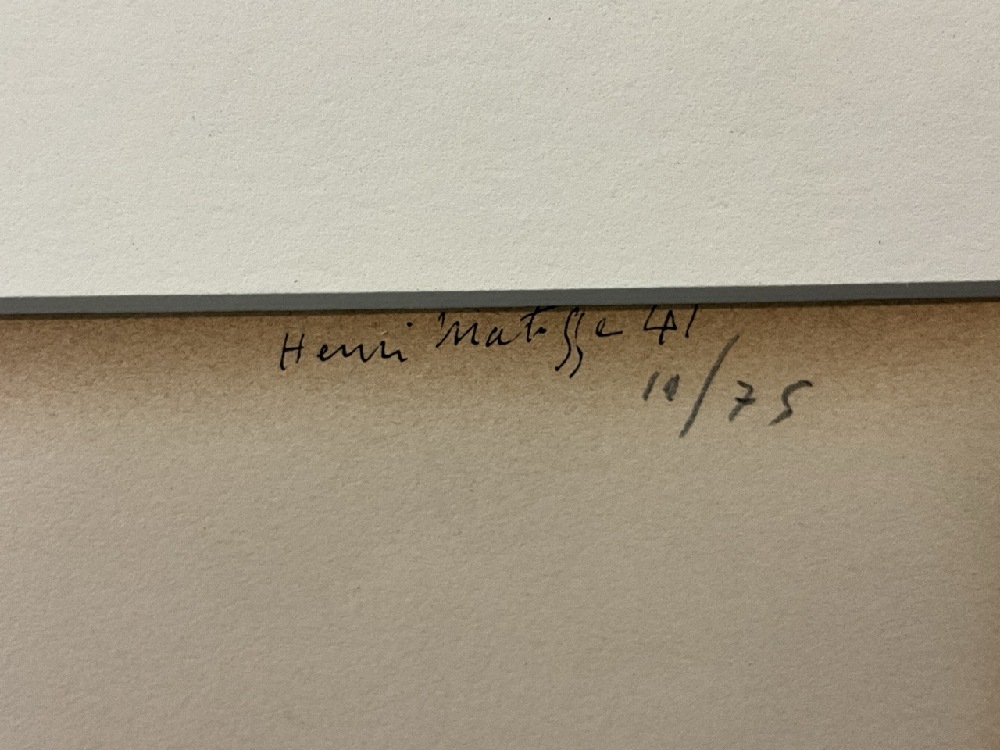 Henri Matisse 41
10/75